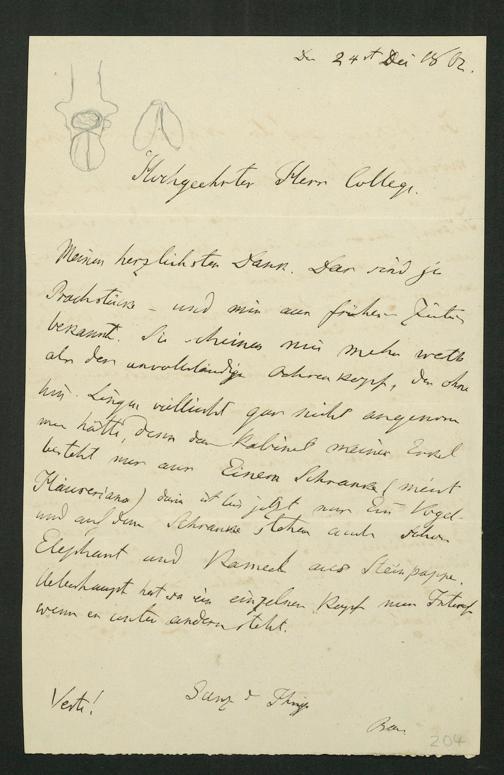 Den 24st Dec 1862.
Hochgeehrter Herr College.
Meinen herzlichsten Dank. Das sind ja
Prachtstücke – und mir aus früheren Zeiten
bekannt. Sie scheinen mir mehr werth
als der unvollständige Ochsenkopf, den ohne
vielleicht gar nicht angenom
men hätte, denn das Kabinet meiner Enkel
besteht nur aus Einem Schranke (meist
) darin ist bis jetzt nur Ein Vogel
und auf dem Schranke stehen auch schon
Elephant und Kameel aus Steinpappe.
Ueberhaupt hat so ein einzelner Kopf nur
wenn er unter andern steht.
Ganz d Ihrige
Verte!
204